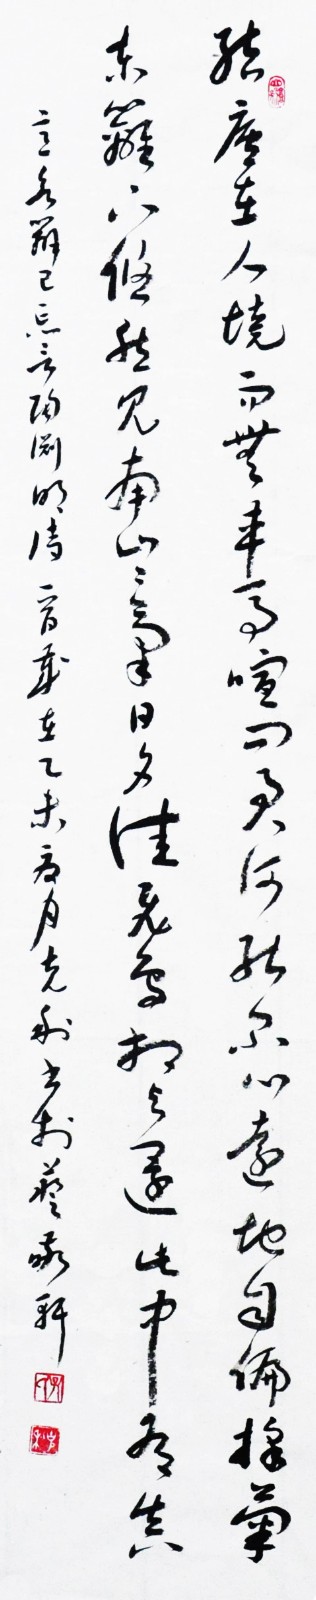 結廬在人境而無車馬喧問君何能尔心遠地自偏採菊
東籬下悠然見南山山氣日夕佳飛鳥相與還此中有真
意欲辯已忘言陶渊明诗一首歲在乙未夏月克利书於藝
軒